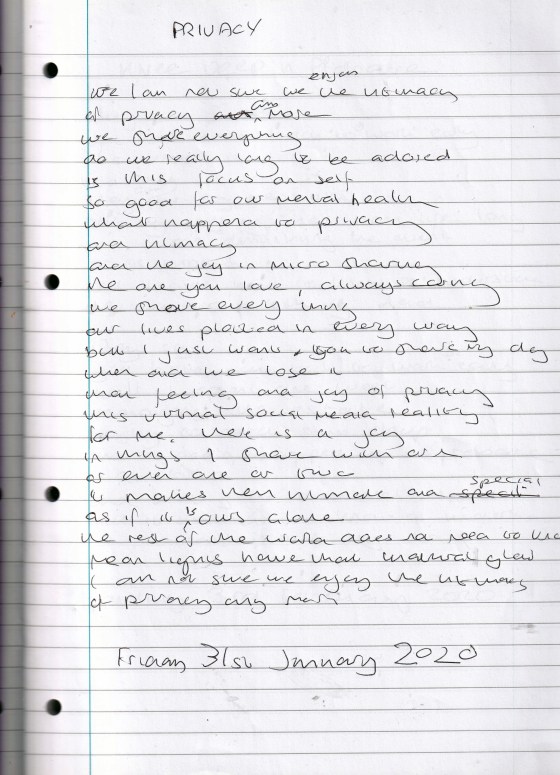 PRIVACY
we I am not sure we enjoy the intimacy
of privacy any more
we share everything
do we really long to be adored
is this focus on self
so good for our mental health
what happend to privacy
and intimacy
and the joy in micro sharing
the one you love, always caring
we share every thing
our lives placed in every way
but I just want you to share my day
when did we lose it
that feeling and joy of privacy
this virtual social media reality
for me. there is a joy
in things I share with one
or even one or two
it makes them intimate and special
as if it is ours alone
the rest of the world does not need to
neon lights have that glow
I am not sure we enjoy the intimacy
of privacy any more
Friday 31st January 2020